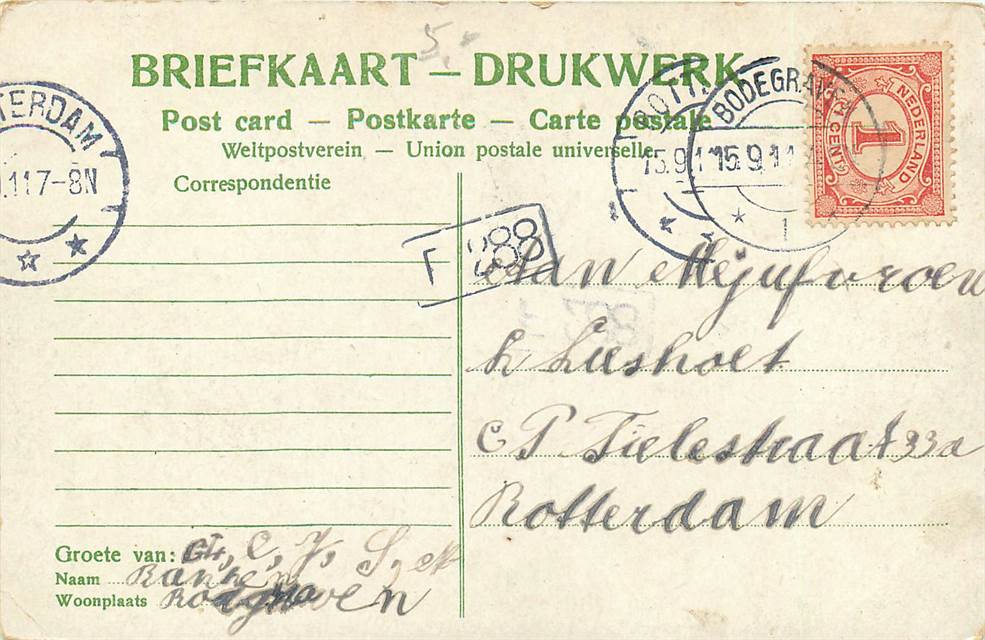 5.-
BRIEFKAART — DRUKWERK
Post card — Postkarte — Carte postale
Weltpostverein — Union postale universelle
Correspondentie
TERDAM
.11 7-8N
ROTT
15.9.1
BODEGRAVEN
15.9.11
1
NEDERLAND
1
1 CENT
F 388
Aan Mejufvrouw
L Lieshoet
C P Tielestraat 33a
Rotterdam
Groete van: C, J, S,
Naam
Woonplaats